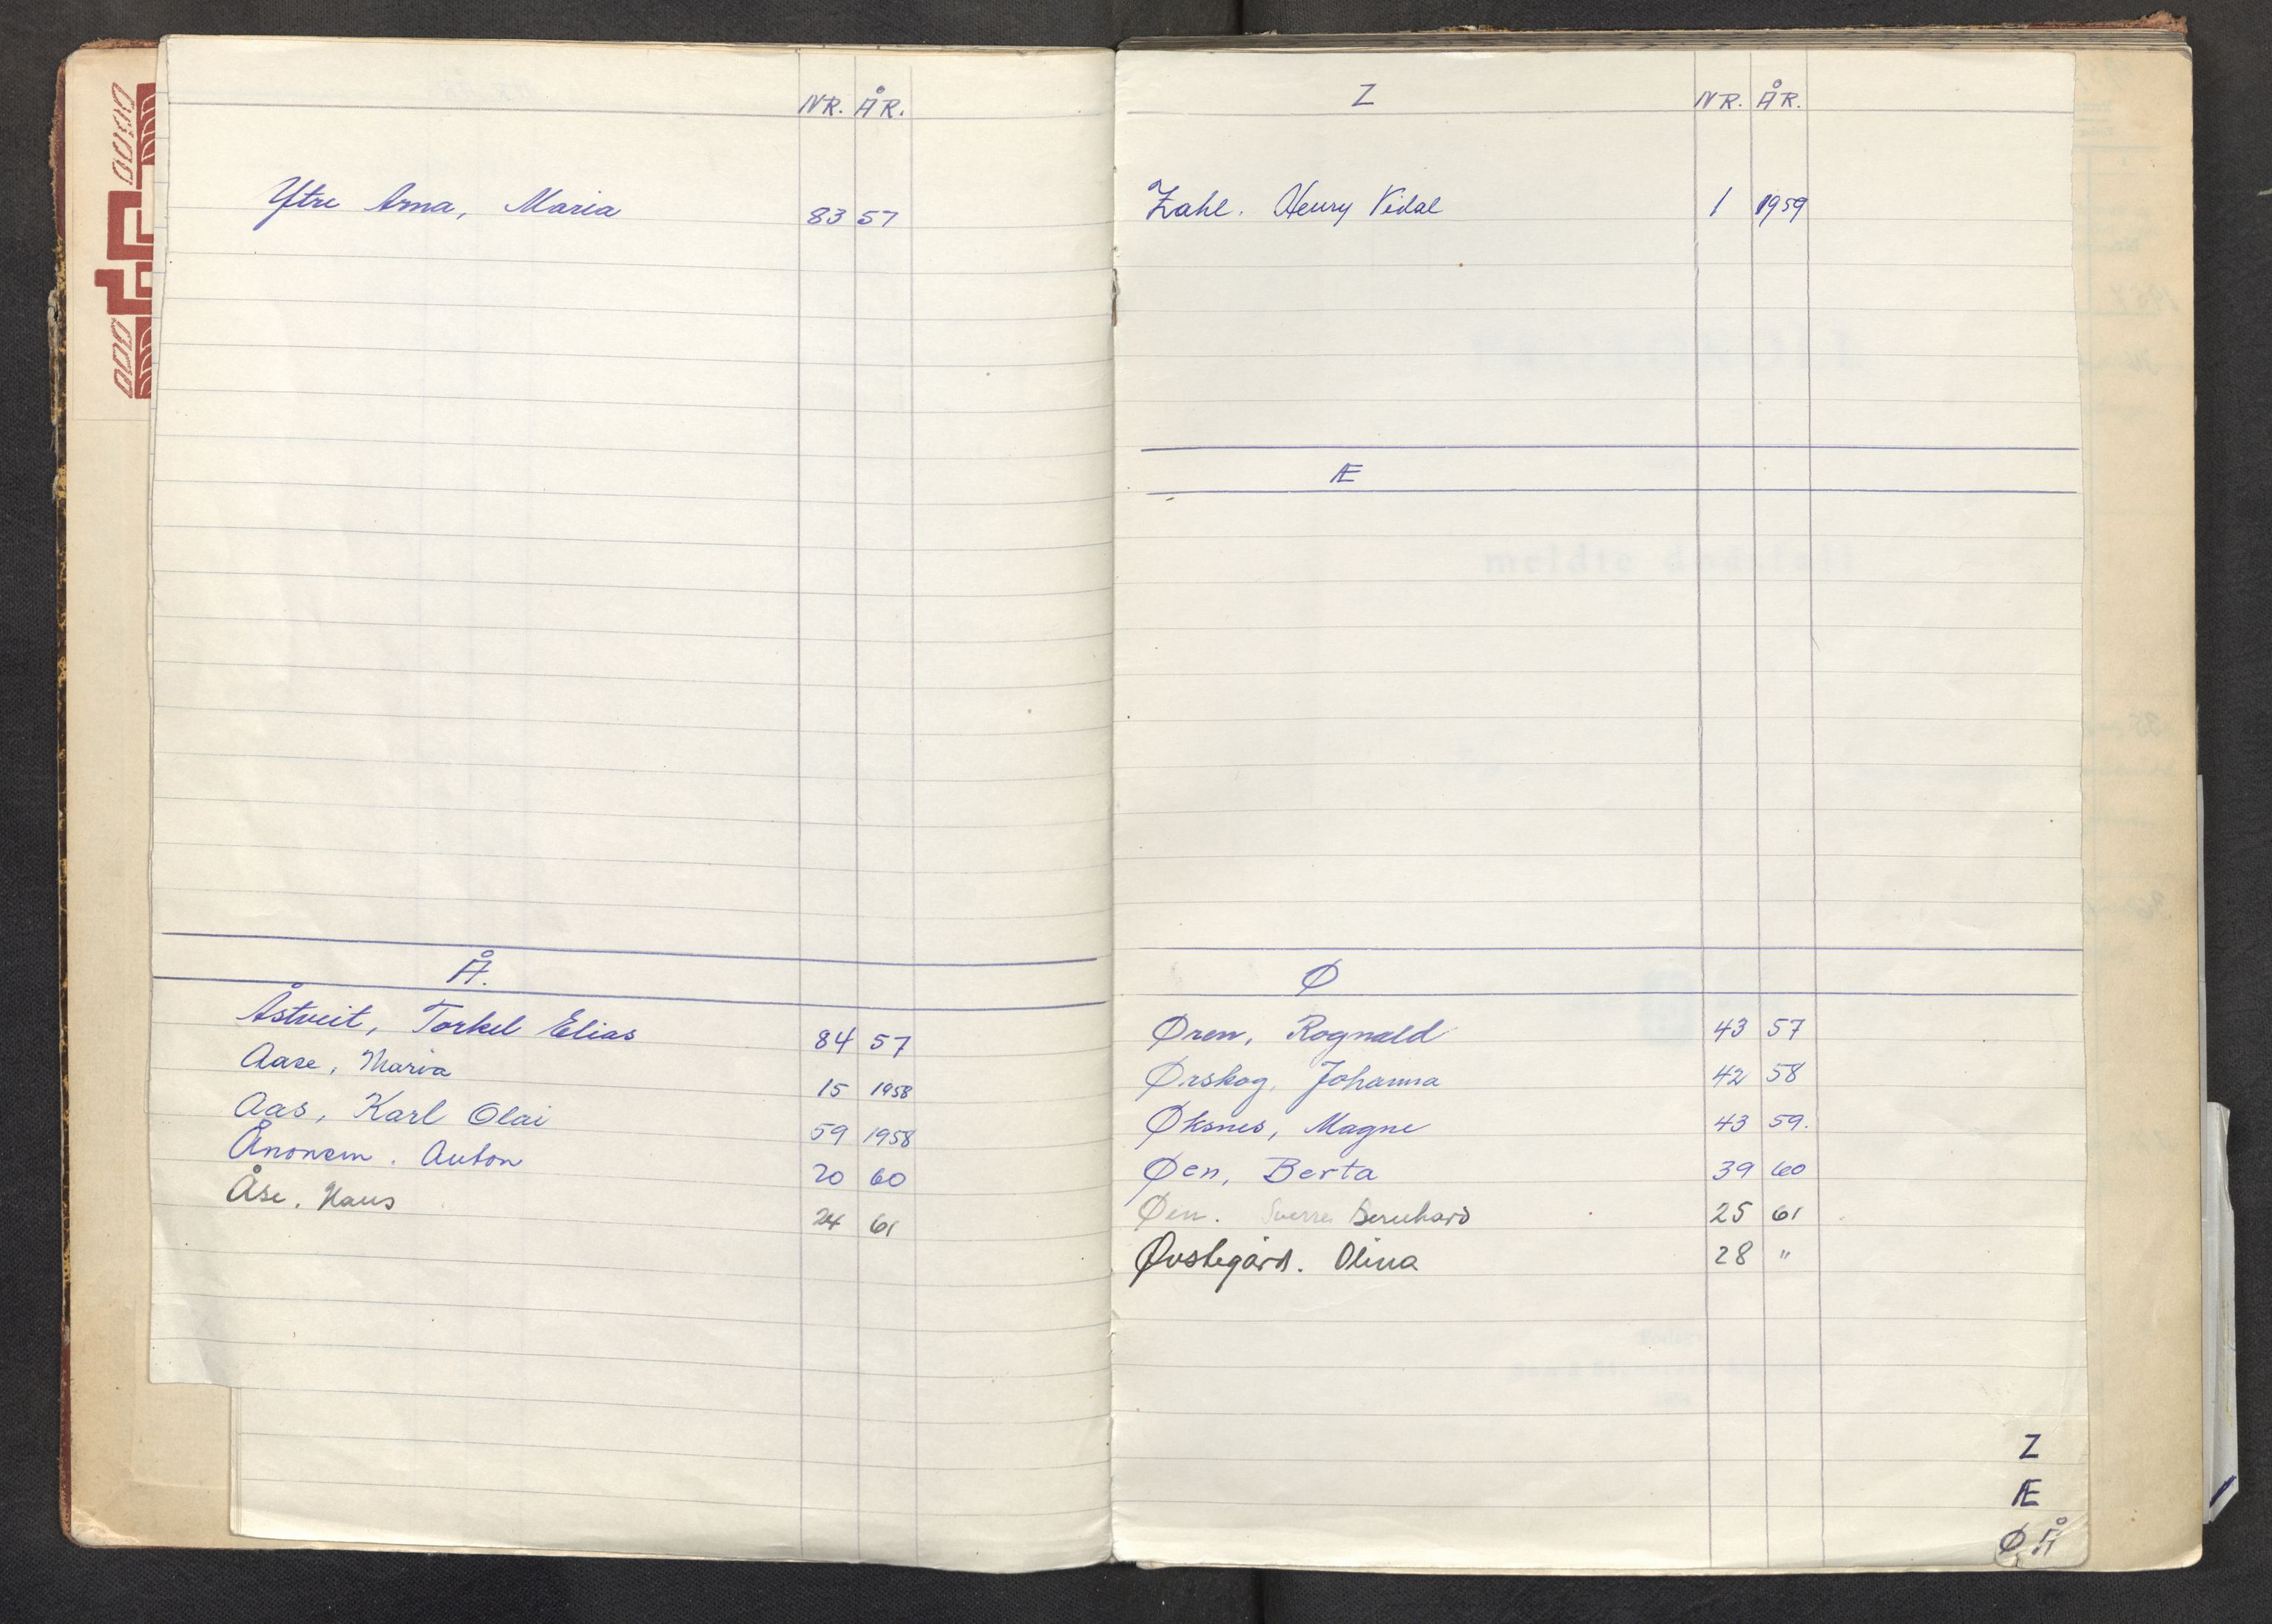 NR. ÅR.
Ytre Arna, Maria 83 57
Å.
Åstveit, Torkel Elias 84 57
Aase, Maria 15 1958
Aas, Karl Olai 59 1958
Ånonsen. Anton 20 60
Åse. Hans 24 61
Z NR. ÅR.
Zahl. Henry Vidal 1 1959
Æ
Ø
Øren, Rognald 43 57
Ørskog, Johanna 42 58
Øksnes, Magne 43 59.
Øen, Berta 39 60
Øen. Sverre Bernhard 25 61
Øvstegård. Olina 28 "
Z
Æ
Ø Å